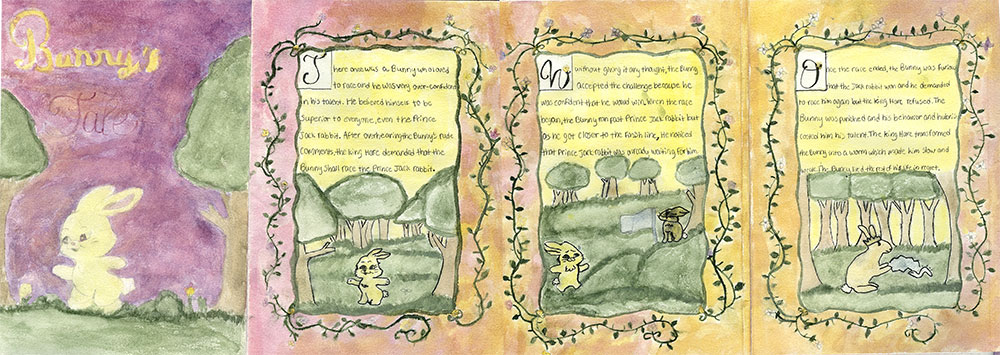 Bunny's
There once was a Bunny who loved
to race and he was very over-confident
in his talent. He believed himself to be
Superior to everyone, even the Prince
Jack rabbit. After overhearing the Bunny's rude
comments, the King Hare demanded that the
Bunny shall race the Prince Jack rabbit.
Without giving it any thought, the Bunny
accepted the challenge because he
was confident that he would win. When the race
began, the Bunny ran past Prince Jack rabbit but
as he got closer to the finish line, He noticed
that Prince Jack rabbit was already waiting for him.
Once the race ended, the Bunny was furious
that the Jack rabbit won and he demanded
to race him again but the King Hare refused. The
Bunny was punished and his behavior and hubris
costed him his talent. The King Hare transformed
the Bunny into a worm which made him slow and
weak. The Bunny lived the rest of his life in regret.